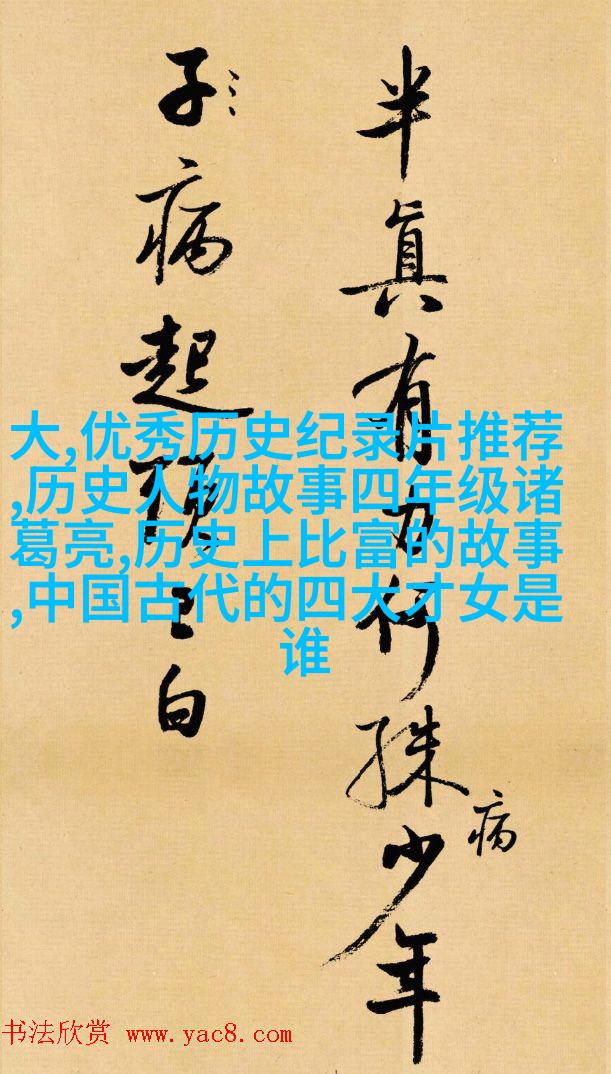 半真有力何殊少年
病
子病起頭已白
大,优秀历史纪录片推荐
,历史人物故事四年级诸
葛亮,历史上比富的故事
,中国古代的四大才女是
谁
书法欣赏 www.yac8.com